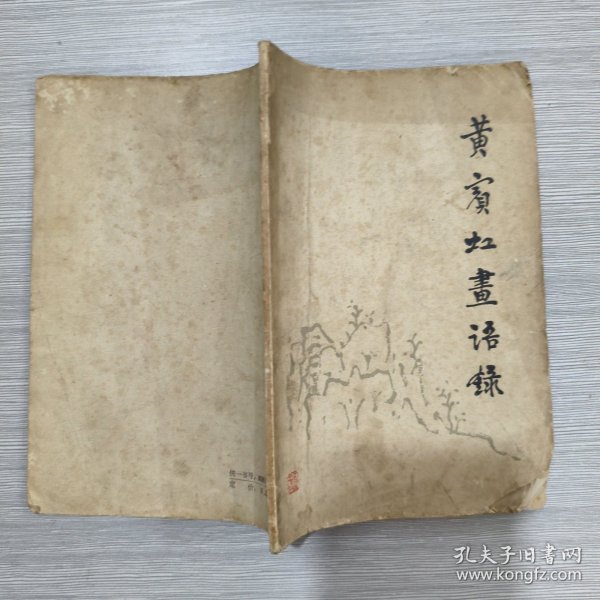 黄賓虹畫语錄
统一书号
定 价
孔夫子旧书网
www.kongfz.com